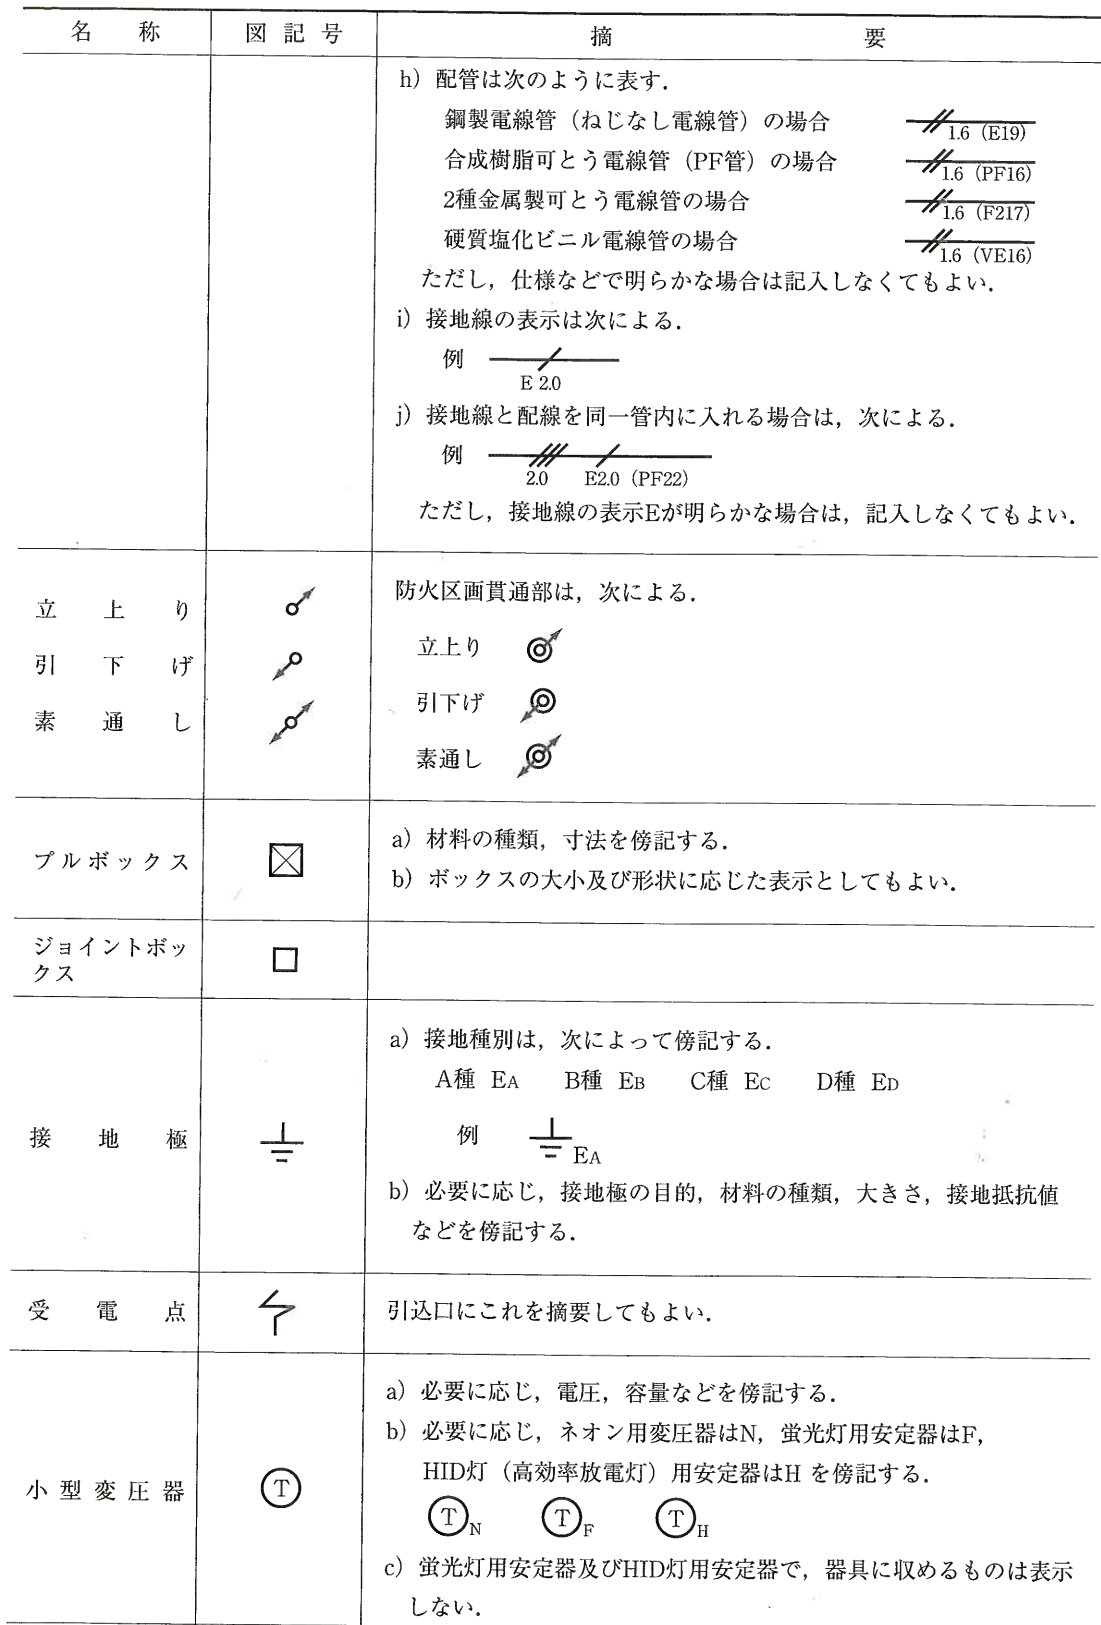 名称 図記号 摘要
h) 配管は次のように表す.
鋼製電線管（ねじなし電線管）の場合 1.6（E19）
合成樹脂可とう電線管（PF管）の場合 1.6（PF16）
2種金属製可とう電線管の場合 1.6（F217）
硬質塩化ビニル電線管の場合 1.6（VE16）
ただし，仕様などで明らかな場合は記入しなくてもよい.
i) 接地線の表示は次による.
例
E 2.0
j) 接地線と配線を同一管内に入れる場合は，次による.
例
2.0 E2.0（PF22）
ただし，接地線の表示Eが明らかな場合は，記入しなくてもよい.
立上り
引下げ
素通し
防火区画貫通部は，次による.
立上り
引下げ
素通し
プルボックス
a) 材料の種類，寸法を傍記する.
b) ボックスの大小及び形状に応じた表示としてもよい.
ジョイントボッ
クス
接地極
a) 接地種別は，次によって傍記する.
A種 EA B種 EB C種 EC D種 ED
例 EA
b) 必要に応じ，接地極の目的，材料の種類，大きさ，接地抵抗値
などを傍記する.
受電点
引込口にこれを摘要してもよい.
小型変圧器
T
a) 必要に応じ，電圧，容量などを傍記する.
b) 必要に応じ，ネオン用変圧器はN，蛍光灯用安定器はF，
HID灯（高効率放電灯）用安定器はH を傍記する.
T N T F T H
c) 蛍光灯用安定器及びHID灯用安定器で，器具に収めるものは表示
しない.